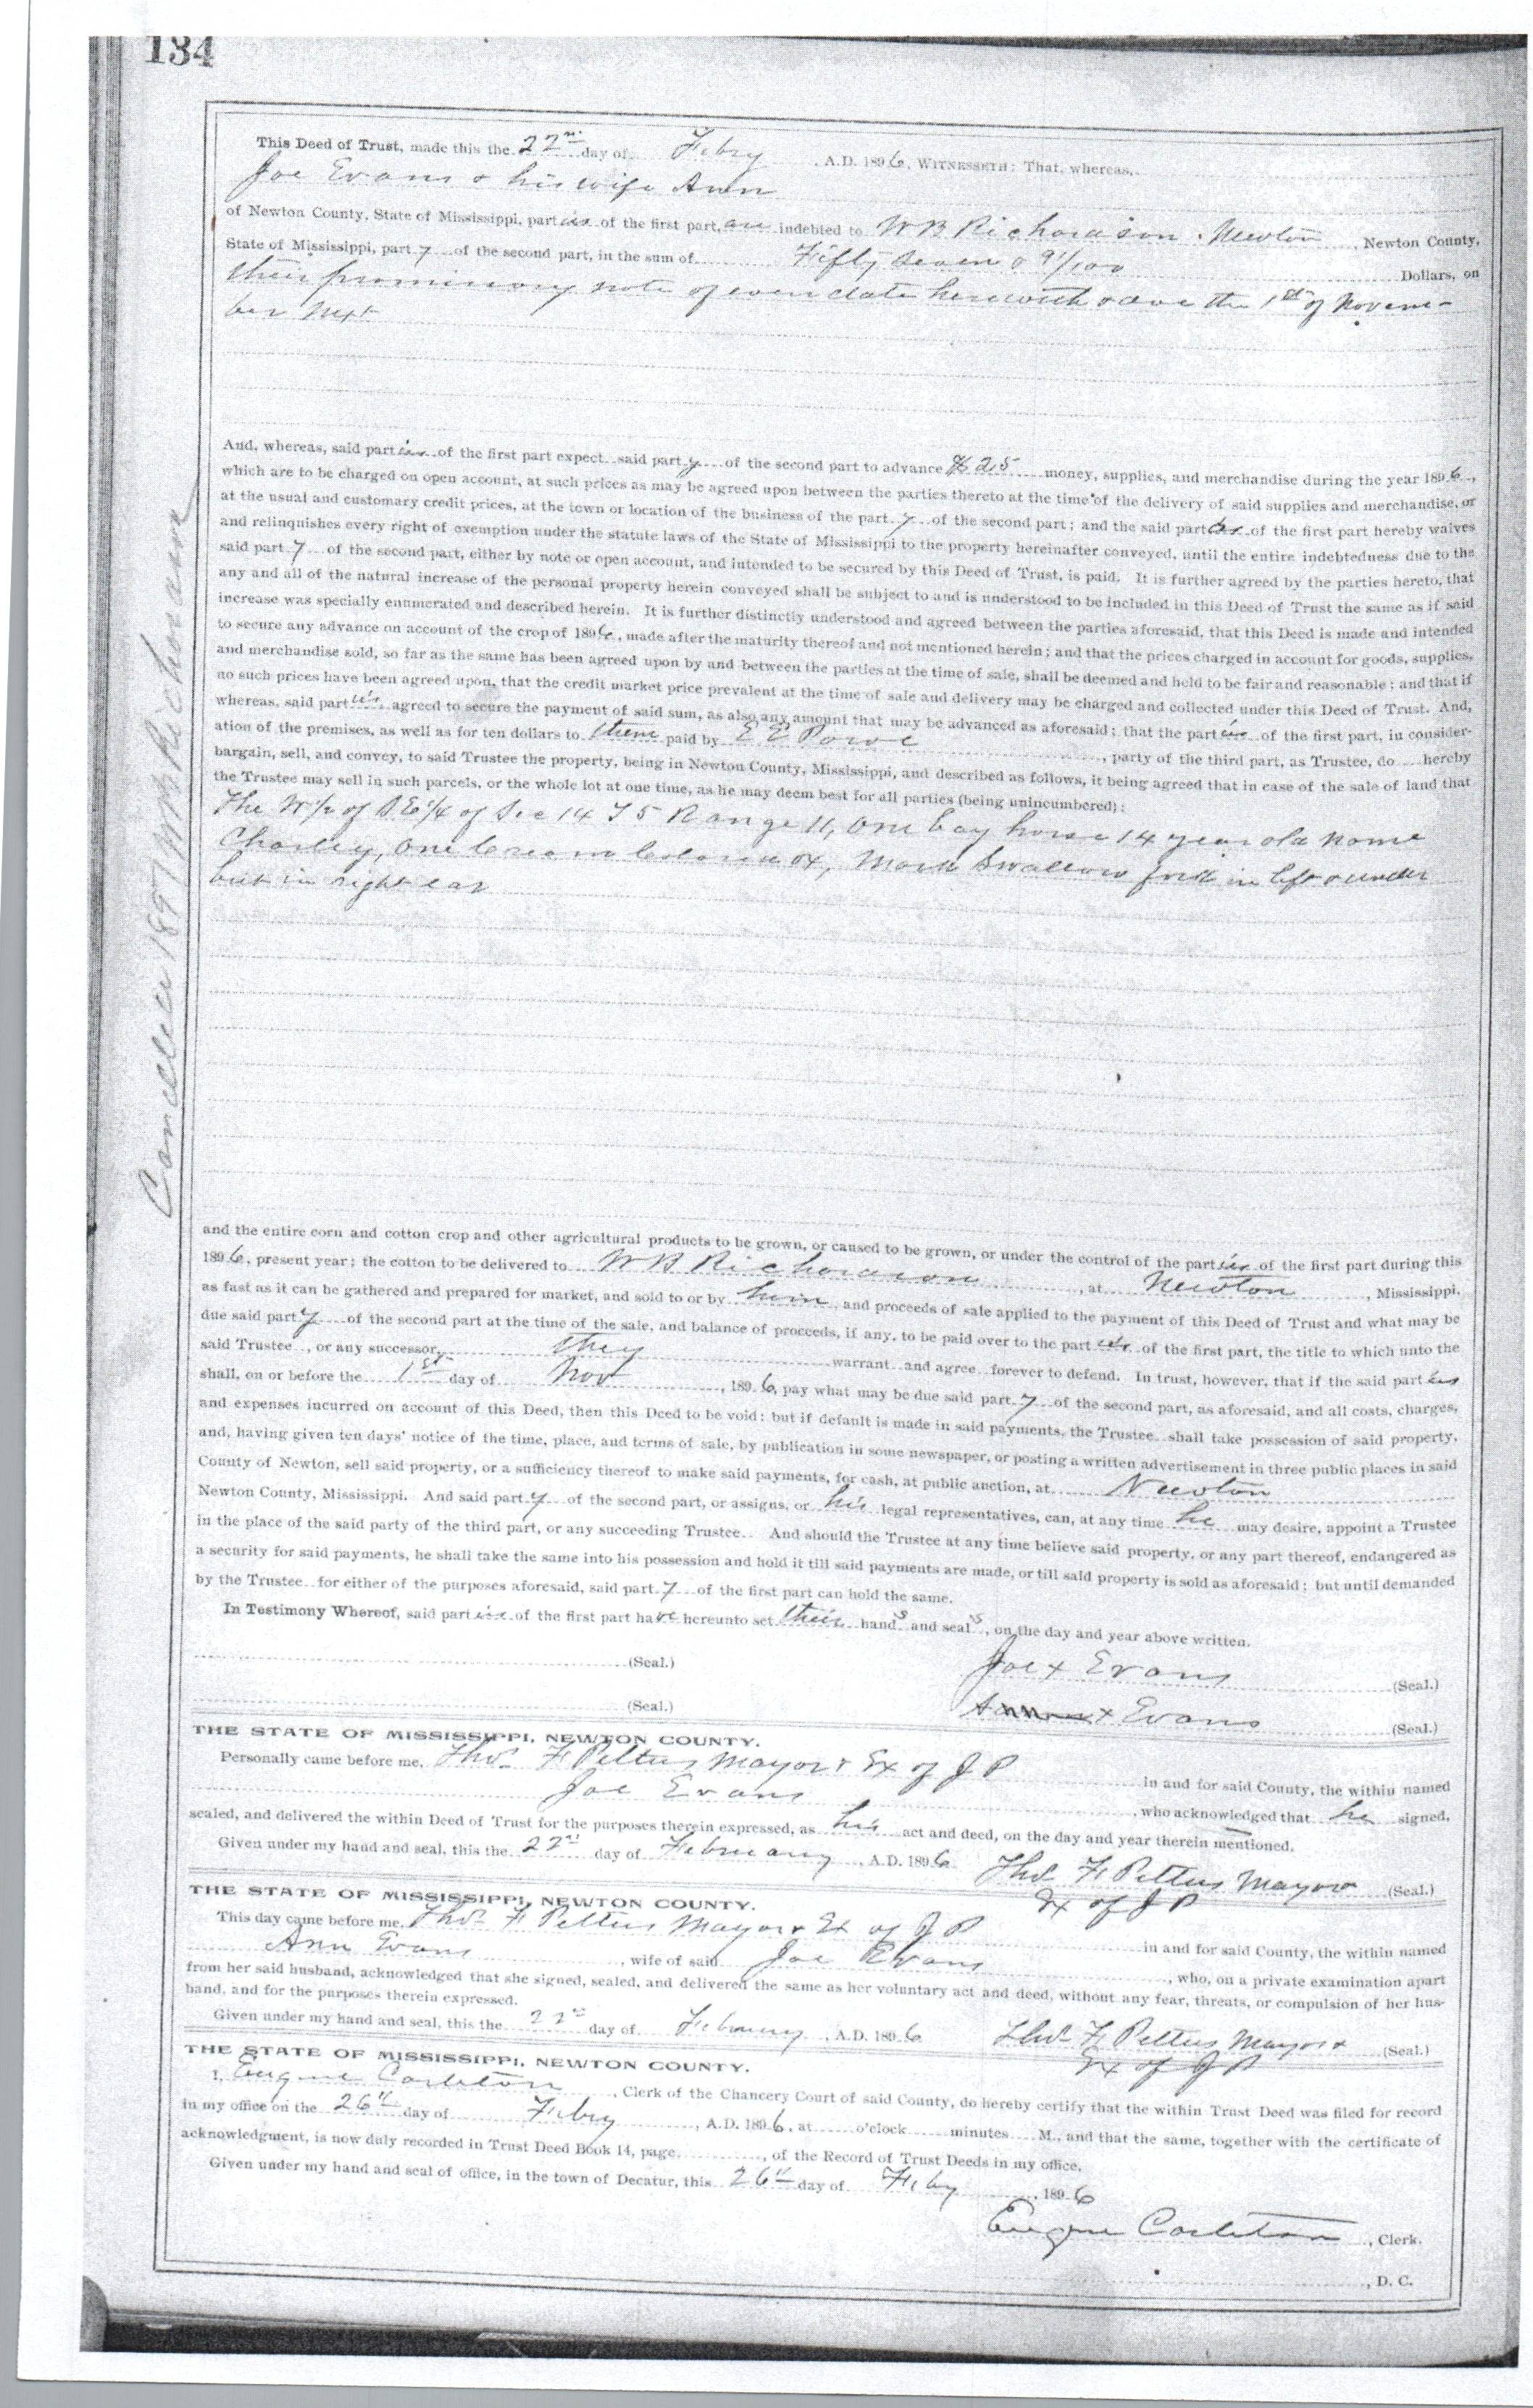 134
This Deed of Trust, made this the 22nd day of Febry, A.D. 1896, WITNESSETH: That, whereas,
Joe Evans & his wife Ann
of Newton County, State of Mississippi, parties of the first part, are indebted to W B Richardson. Newton, Newton County,
State of Mississippi, party of the second part, in the sum of Fifty Seven & 91/100 Dollars, on
their promissory note of even date herewith & due the 1st of Novem-
ber Next
And, whereas, said parties of the first part expect said party of the second part to advance $25 money, supplies, and merchandise during the year 1896,
which are to be charged on open account, at such prices as may be agreed upon between the parties thereto at the time of the delivery of said supplies and merchandise, or
at the usual and customary credit prices, at the town or location of the business of the party of the second part; and the said parties of the first part hereby waives
and relinquishes every right of exemption under the statute laws of the State of Mississippi to the property hereinafter conveyed, until the entire indebtedness due to the
said party of the second part, either by note or open account, and intended to be secured by this Deed of Trust, is paid. It is further agreed by the parties hereto, that
any and all of the natural increase of the personal property herein conveyed shall be subject to and is understood to be included in this Deed of Trust the same as if said
increase was specially enumerated and described herein. It is further distinctly understood and agreed between the parties aforesaid, that this Deed is made and intended
to secure any advance on account of the crop of 1896, made after the maturity thereof and not mentioned herein; and that the prices charged in account for goods, supplies,
and merchandise sold, so far as the same has been agreed upon by and between the parties at the time of sale, shall be deemed and held to be fair and reasonable; and that if
no such prices have been agreed upon, that the credit market price prevalent at the time of sale and delivery may be charged and collected under this Deed of Trust. And,
whereas, said parties agreed to secure the payment of said sum, as also any amount that may be advanced as aforesaid; that the parties of the first part, in consider-
ation of the premises, as well as for ten dollars to them paid by E E Powe, party of the third part, as Trustee, do hereby
bargain, sell, and convey, to said Trustee the property, being in Newton County, Mississippi, and described as follows, it being agreed that in case of the sale of land that
the Trustee may sell in such parcels, or the whole lot at one time, as he may deem best for all parties (being unincumbered):
The W 1/2 of S.E 1/4 of Sec 14 T 5 Range 11, One bay horse 14 year old name
Charley, One Cream Colored ox, Mark Swallow fork in left & under
bit in right ear
and the entire corn and cotton crop and other agricultural products to be grown, or caused to be grown, or under the control of the parties of the first part during this
1896, present year; the cotton to be delivered to W B Richardson, at Newton, Mississippi,
as fast as it can be gathered and prepared for market, and sold to or by him, and proceeds of sale applied to the payment of this Deed of Trust and what may be
due said party of the second part at the time of the sale, and balance of proceeds, if any, to be paid over to the parties of the first part, the title to which unto the
said Trustee, or any successor, they warrant and agree forever to defend. In trust, however, that if the said parties
shall, on or before the 1st day of Nov, 1896, pay what may be due said party of the second part, as aforesaid, and all costs, charges,
and expenses incurred on account of this Deed, then this Deed to be void; but if default is made in said payments, the Trustee shall take possession of said property,
and, having given ten days' notice of the time, place, and terms of sale, by publication in some newspaper, or posting a written advertisement in three public places in said
County of Newton, sell said property, or a sufficiency thereof to make said payments, for cash, at public auction, at Newton
Newton County, Mississippi. And said party of the second part, or assigns, or his legal representatives, can, at any time he may desire, appoint a Trustee
in the place of the said party of the third part, or any succeeding Trustee. And should the Trustee at any time believe said property, or any part thereof, endangered as
a security for said payments, he shall take the same into his possession and hold it till said payments are made, or till said property is sold as aforesaid; but until demanded
by the Trustee for either of the purposes aforesaid, said party of the first part can hold the same.
In Testimony Whereof, said parties of the first part have hereunto set their hands and seals, on the day and year above written.
(Seal.) Joe x Evans (Seal.)
(Seal.) Ann x Evans (Seal.)
THE STATE OF MISSISSIPPI, NEWTON COUNTY.
Personally came before me, Thos F Pettus Mayor & Ex of J P in and for said County, the within named
Joe Evans, who acknowledged that he signed,
sealed, and delivered the within Deed of Trust for the purposes therein expressed, as his act and deed, on the day and year therein mentioned.
Given under my hand and seal, this the 22nd day of February, A.D. 1896 Thos F Pettus Mayor (Seal.)
Ex of J P
THE STATE OF MISSISSIPPI, NEWTON COUNTY.
This day came before me, Thos F Pettus Mayor & Ex of J P in and for said County, the within named
Ann Evans, wife of said Joe Evans, who, on a private examination apart
from her said husband, acknowledged that she signed, sealed, and delivered the same as her voluntary act and deed, without any fear, threats, or compulsion of her hus-
hand, and for the purposes therein expressed.
Given under my hand and seal, this the 22nd day of February, A.D. 1896 Thos F Pettus Mayor & (Seal.)
Ex of J P
THE STATE OF MISSISSIPPI, NEWTON COUNTY.
I, Eugene Carleton, Clerk of the Chancery Court of said County, do hereby certify that the within Trust Deed was filed for record
in my office on the 26th day of Febry, A.D. 1896, at o'clock minutes M., and that the same, together with the certificate of
acknowledgment, is now duly recorded in Trust Deed Book 14, page, of the Record of Trust Deeds in my office.
Given under my hand and seal of office, in the town of Decatur, this 26th day of Feby, 1896
Eugene Carleton, Clerk.
, D. C.
Cancelled 1897 W B Richardson